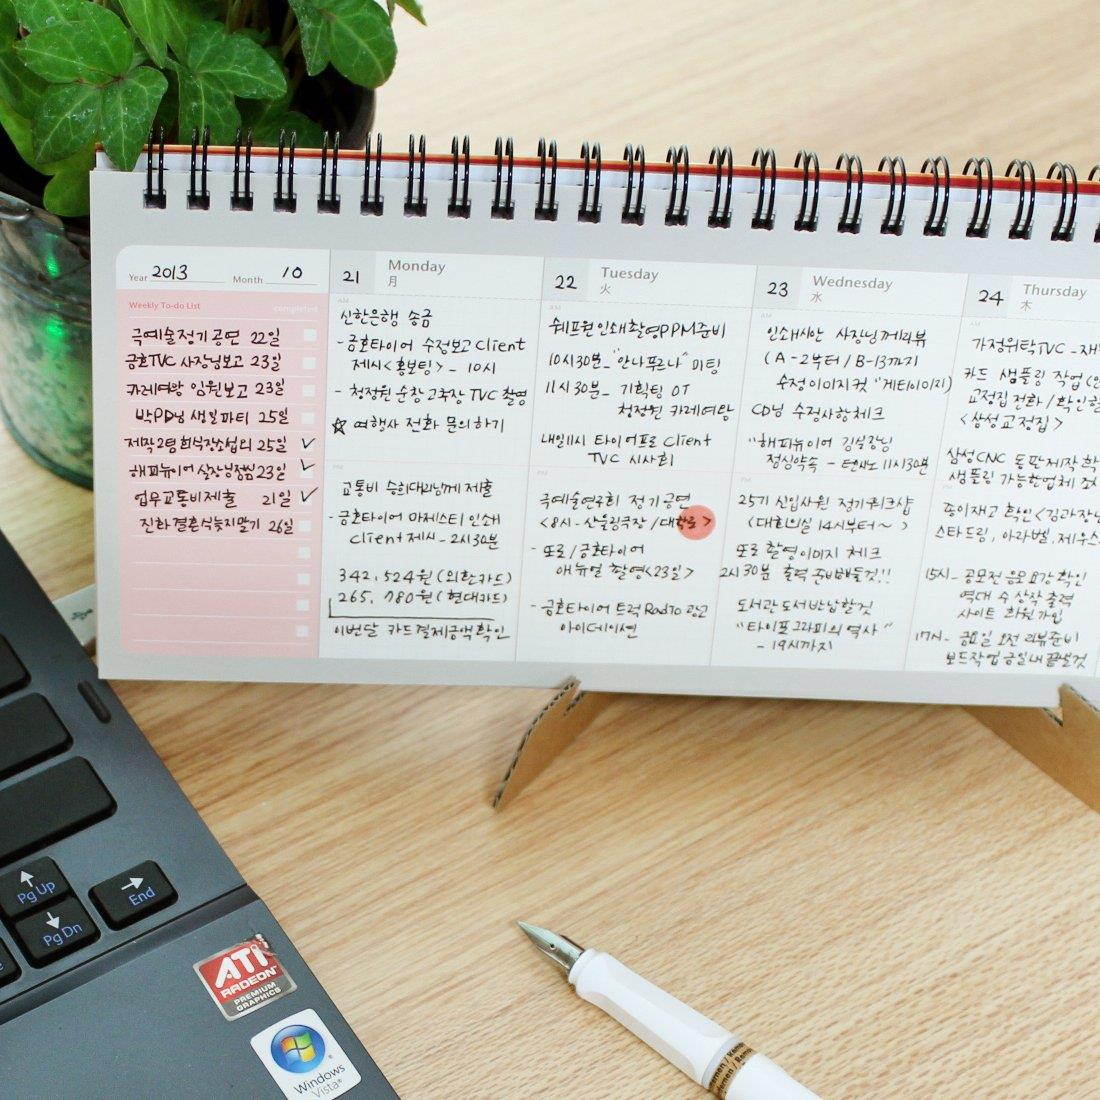 Year 2013 Month 10
Weekly To-do List completed
극예술정기공연 22일
금호TVC 사장님보고 23일
카레여왕 임원보고 23일
박PD님 생일파티 25일
제작2팀 회식장소섭외 25일
해피뉴이어 실장님점심 23일
업무교통비제출 21일
진화결혼식늦지말기 26일
21 Monday
月
AM
신한은행 송금
-금호타이어 수정보고 Client
제시<홍보팅> - 10시
- 청정원 순창고추장 TVC 촬영
☆ 여행사 전화 문의하기
PM
교통비 승희대리님께 제출
-금호타이어 마제스티 인쇄
Client 제시 - 2시30분
342,524원 (외환카드)
265,780원 (현대카드)
이번달 카드결제금액확인
22 Tuesday
火
AM
쉐프원인쇄촬영PPM준비
10시30분_ "안나푸르나" 미팅
11시30분_ 기획팀 OT
청정원 카레여왕
내일11시 타이어프로 Client
TVC 시사회
PM
극예술연구회 정기공연
<8시- 산울림극장 / 대학로>
- 또로/금호타이어
애뉴얼 촬영<23일>
- 금호타이어 트럭 Radio 광고
아이데이션
23 Wednesday
水
AM
인쇄시안 사장님께리뷰
(A-2부터 / B-13까지
수정이미지컷 "게티이미지)
CD님 수정사항체크
"해피뉴이어 김실장님
점심약속 - 11시30분
PM
25기 신입사원 정기워크샵
(대회의실 14시부터~ )
또로 촬영이미지 체크
2시30분 출력 준비해둘것!!
도서관도서반납할것
"타이포그라피의 역사"
- 19시까지
24 Thursday
木
가정위탁TVC -
카드 샘플링 작업
교정집전화/확인할
<삼성교정집>
삼성CNC 동판제작
샘플링 가능한업체
종이재고 확인<김과장님
스타드림, 아라벨, 제우스
15시_ 공모전 응모요강확인
역대 수상작출력
사이트 회원가입
17시_ 금요일 오전 리뷰준비
보드작업 금일내끝낼것
Pg Up
End
Pg Dn
ATI
RADEON
PREMIUM
GRAPHICS
Windows
Vista